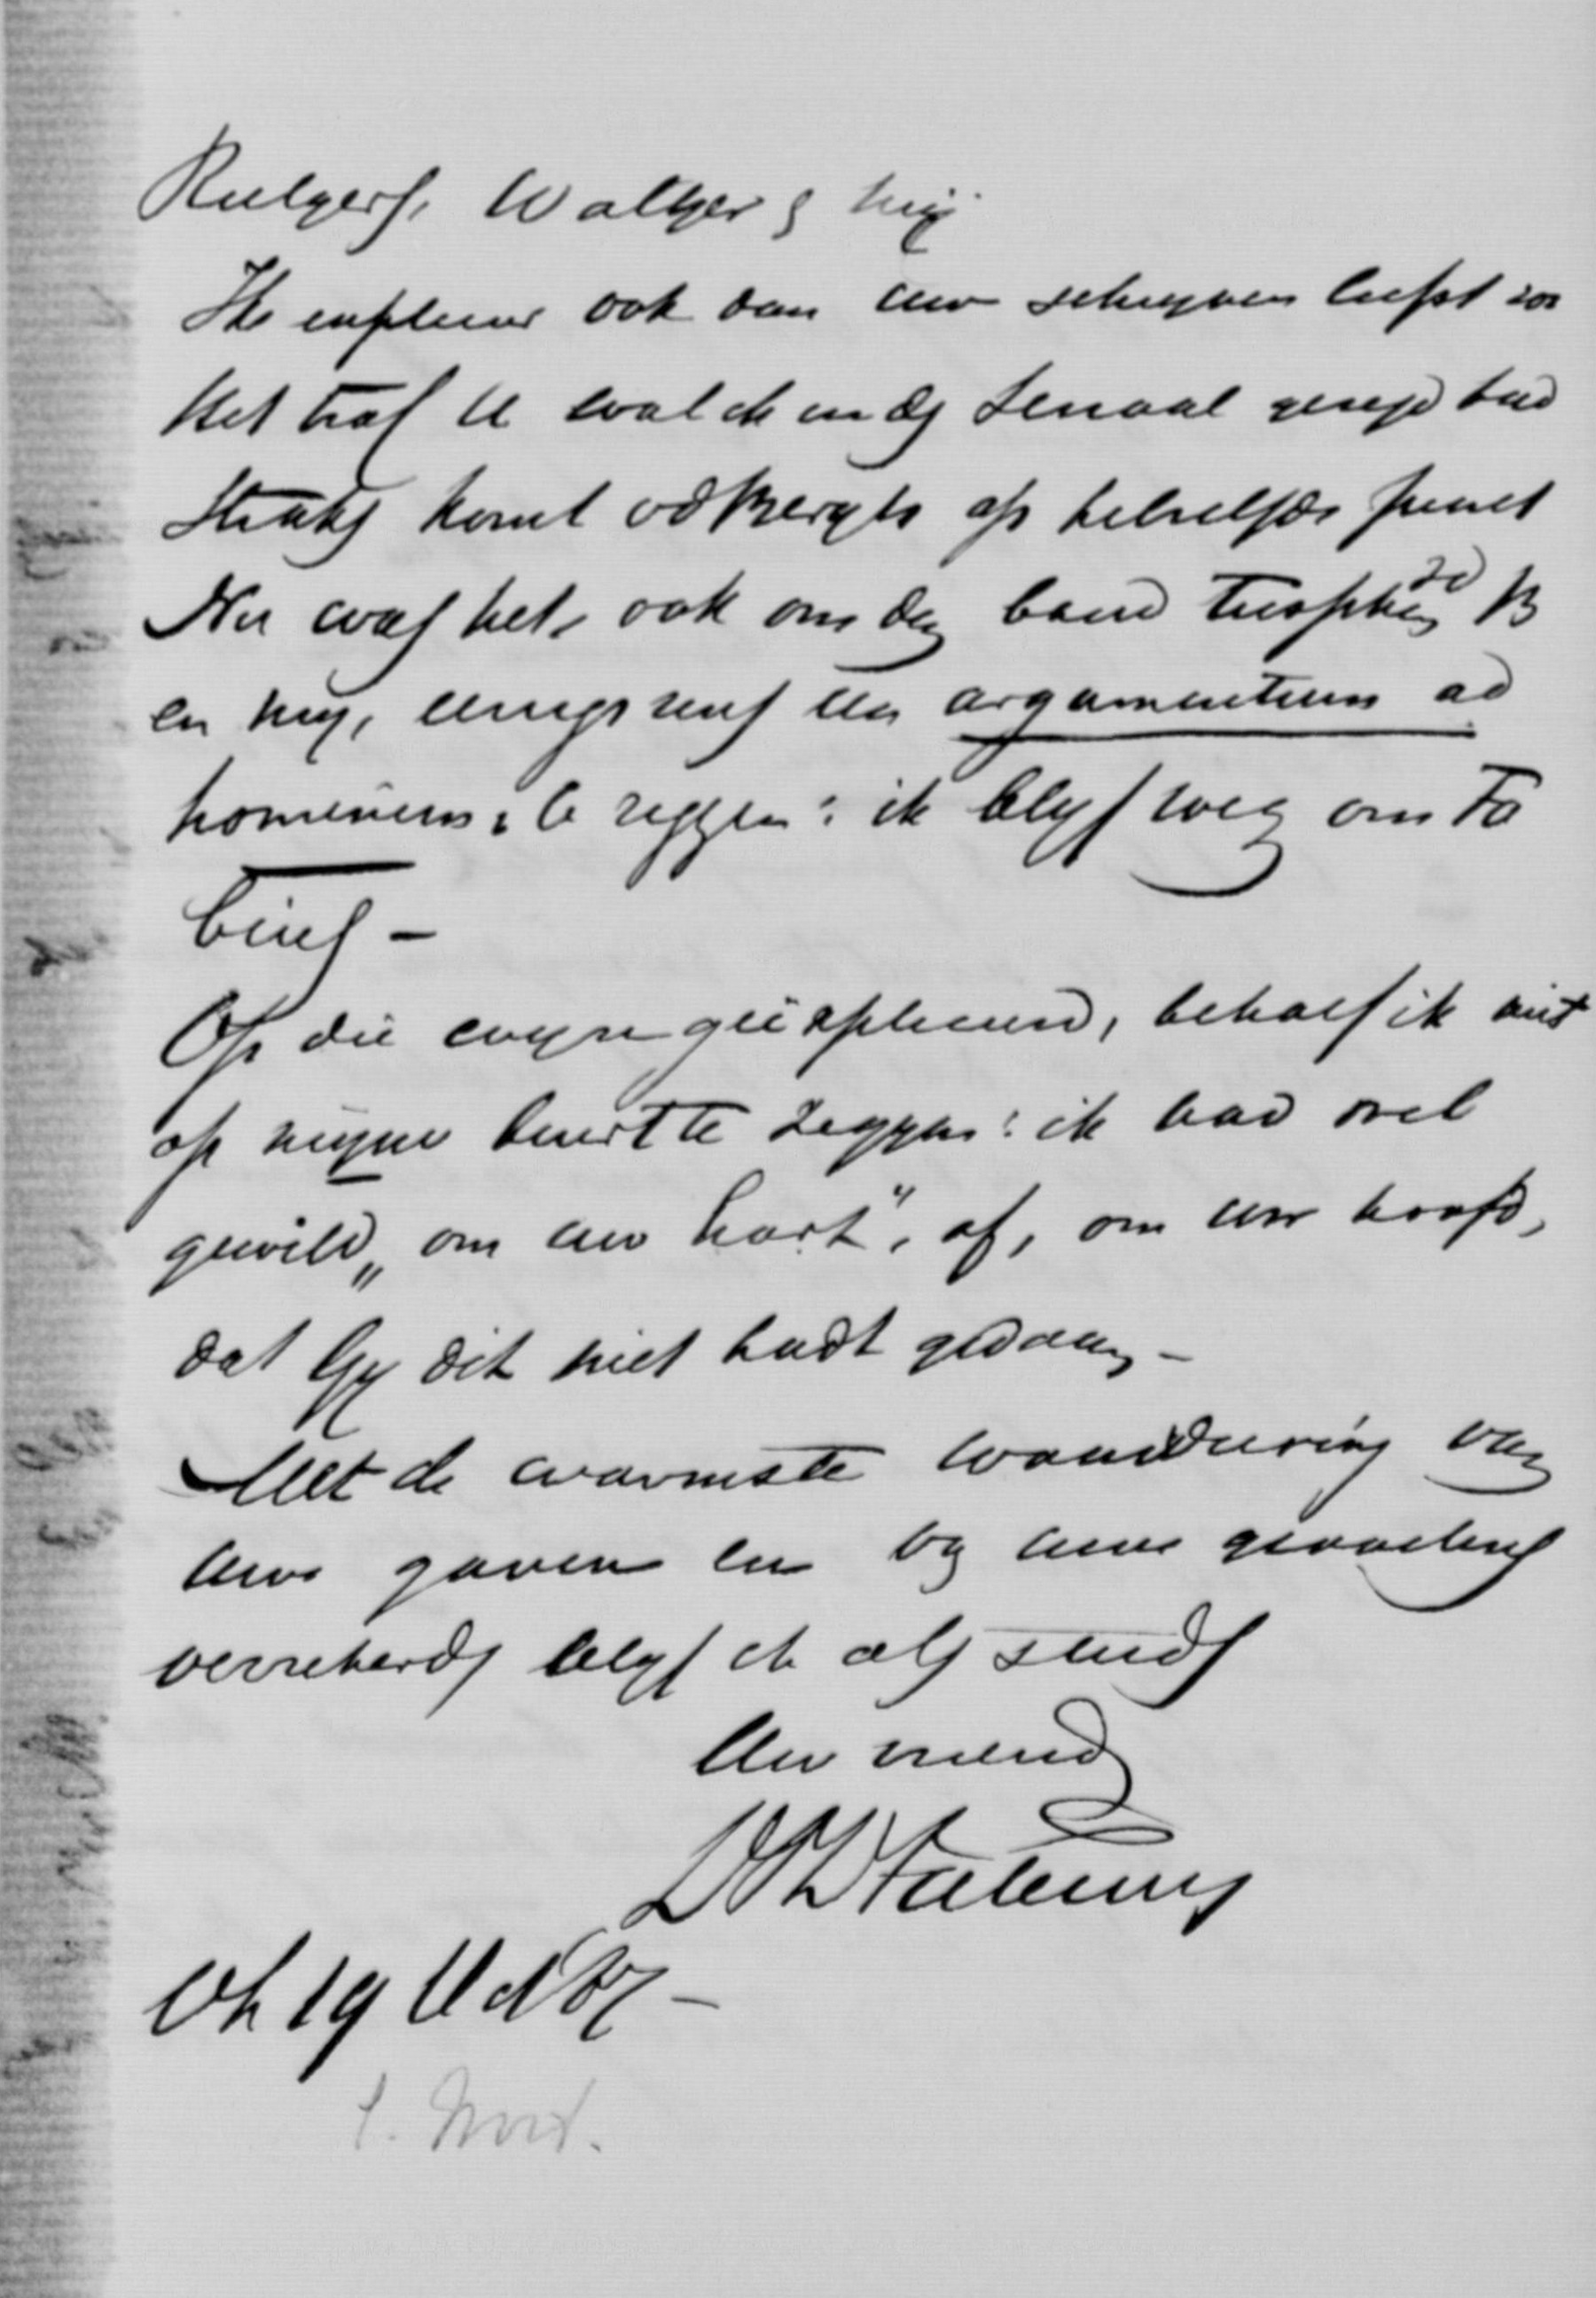 Rutgers, Walther & mij
Ik expliceer ook dan uw schrijven liefst zoo
Het trof U wat ik in de Senaat gezegd had
Straks komt vdBergh op hetzelfde punt
Nu was het, ook om den band tusschen vd B
en mij, eenigszins een argumentum ad
hominem, te zeggen: ik blijf weg om Fa
bius –
Op die wijze geëxpliceerd, behoef ik niet
op mijne beurt te zeggen: ik had wel
gewild „om uw hart", of, om uw hoofd,
dat Gij dit niet hadt gedaan –
Met de warmste waardeering van
uwe gaven en bij uwe
verzekerd, blijf ik als steeds
Uw vriend
DPDFabius
19
1. Nov.